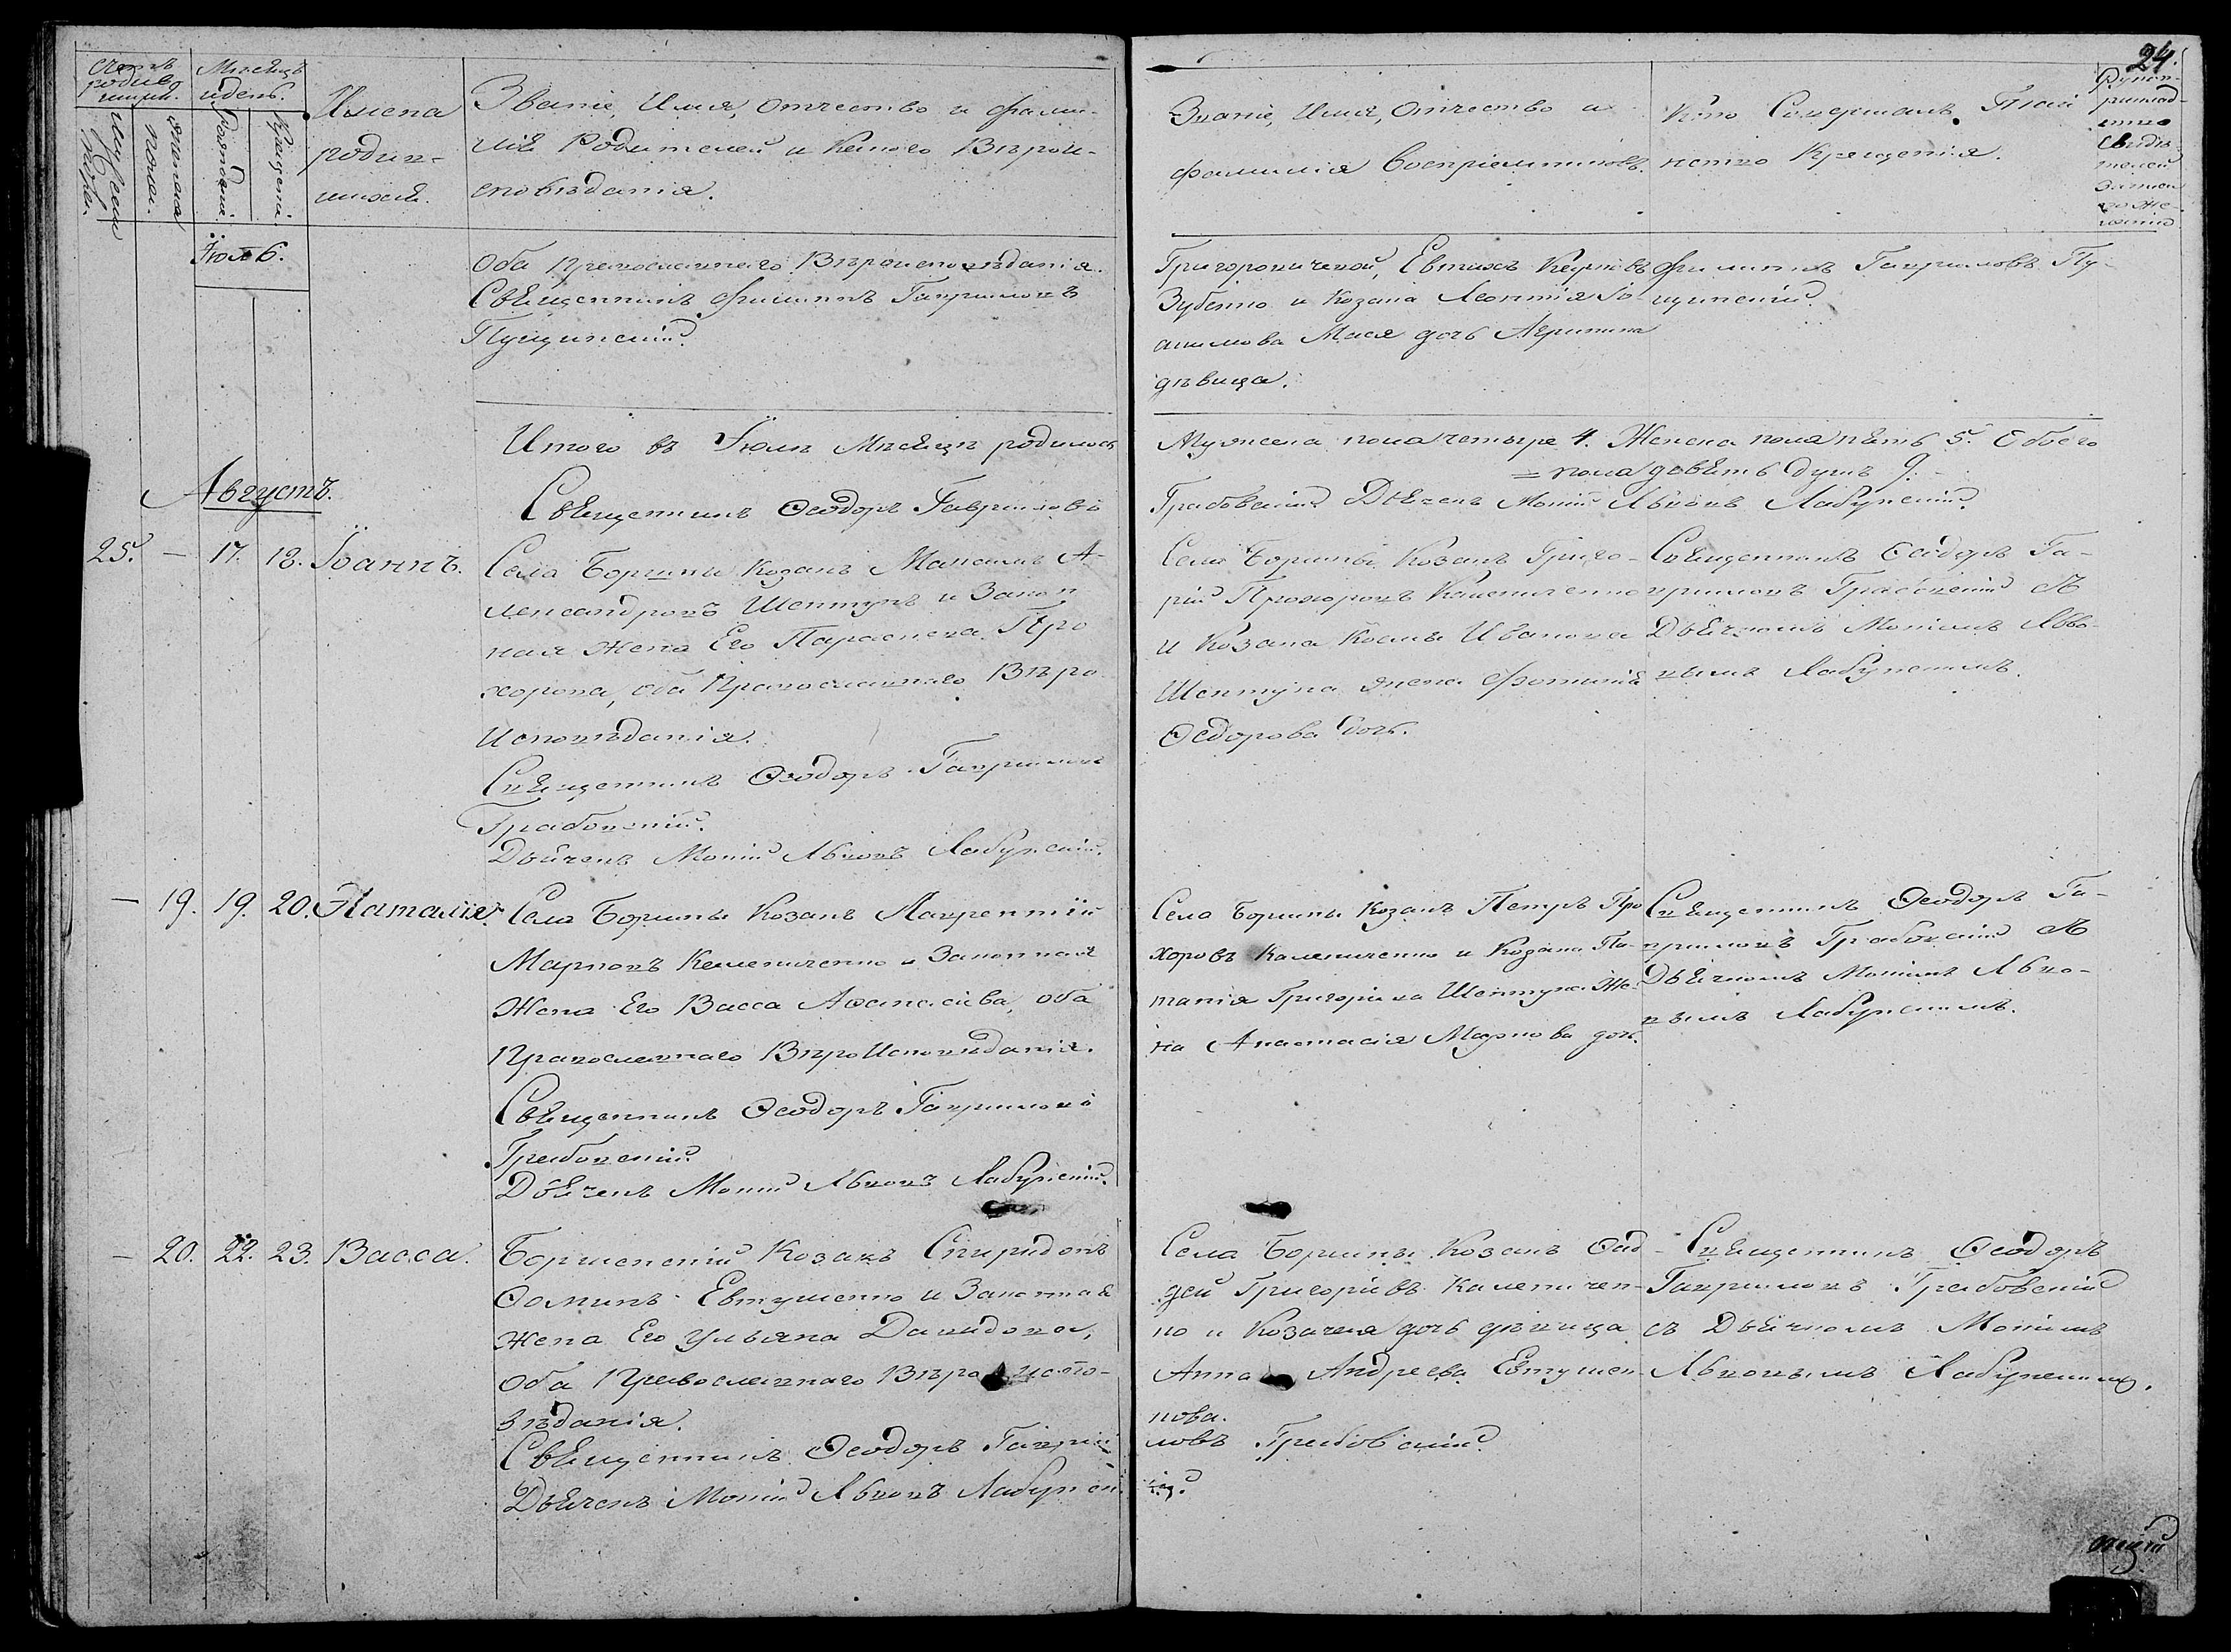 24.
Счетъ родив шихся.
Мужеска пола.
Женска пола.
Мѣсяцъ и день.
Рожденія.
Крещенія.
Имена
родив-
шихся.
Званіе, Имя, отчество и фами-
лія Родителей и какого Вѣрои-
сповѣданія.
Званіе, Имя, отчество и
фамилія Воспріемниковъ.
Кто Совершалъ Таин
ство Крещенія.
Рукоп-
риклад-
ство
Свидѣ-
телей
записи
по же-
ланію
Іюль
Оба православнаго Вѣроисповѣданія.
Священникъ Филиппъ Гавриловъ
Пущинскій.
Евтихъ
Зубенко и Козака Леонтія
дочь Агрипина
дѣвица.
Филиппъ Гавриловъ Пу-
щинскій.
Итого въ Іюлѣ Мѣсяцѣ родилось
Мужеска пола четыре 4. Женска пола пять 5. Обоего
= пола девять душъ 9. -
Августъ.
Священникъ Ѳеодоръ Гавриловъ
Грабовскій Дьячекъ Мокій Львовъ Лабунскій.
25. — 17. 18. Іоаннъ.
Села Боршны Козакъ Максимъ А-
лександровъ Шептунъ и Закон
ная жена Его Параскева Про
хорова, оба Православнаго Вѣро
Исповѣданія.
Священникъ Ѳеодоръ Гавриловъ
Грабовскій.
Дьячекъ Мокій Львовъ Лабунскій.
Села Боршны Козакъ Григо-
рій Прохоровъ Калениченко
и Козака Космы Иванова
Шептуна жена Фотинія
Ѳедорова дочь.
Священникъ Ѳеодоръ Га-
вриловъ Грабовскій съ
Дьячкомъ Мокіемъ Льво-
вымъ Лабунскимъ.
— 19. 19. 20. Наталія.
Села Боршны Козакъ Лаврентій
Марковъ Калениченко и Законная
Жена Его Васса Аѳанасіева, оба
Православнаго ВѣроИсповѣданія.
Священникъ Ѳеодоръ Гавриловъ
Грабовскій.
Дьячекъ Мокій Львовъ Лабунскій.
Села Боршны Козакъ Петръ Про
хоровъ Калениченко и Козака По-
Григоріева Шептуна Же-
на Анастасія Маркова дочь.
Священникъ Ѳеодоръ Га-
вриловъ Грабовскій съ
Дьячкомъ Мокіемъ Льво-
вымъ Лабунскимъ.
— 20. 22. 23. Васса.
Боршенскій Козакъ Спиридонъ
Ѳоминъ Евтушенко и Законная
жена Его Ульяна Давидова,
оба Православнаго Вѣро испо-
вѣданія.
Священникъ Ѳеодоръ Гаври
Дьячекъ Мокій Львовъ Лабунск
Села Боршны Козакъ Ѳад-
дей Григоріевъ Каленичен-
ко и Козачея дочь дѣвица
Анна Андреева Евтушен-
кова.
ловъ Грабовскій.
ій.
Священникъ Ѳеодоръ
Гавриловъ Грабовскій
съ Дьячкомъ Мокіемъ
Львовымъ Лабунскимъ.